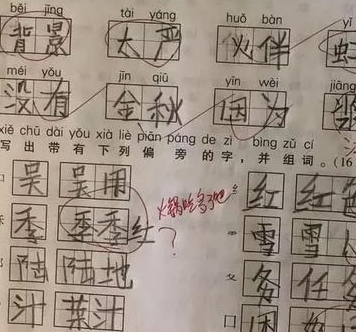 bēi jǐng tài yáng huǒ bàn
背景 太严 伙伴
méi yǒu jīn qiū yīn wèi
没有 金秋 因为
xiě chū dài yǒu xià liè piān páng de zì bìng zǔ cí
写出带有下列偏旁的字，并组词。(16
吴 吴用 红
季 季季红 火锅吃多了吧? 雪
陆 陆地 务 任务
汁 菜汁